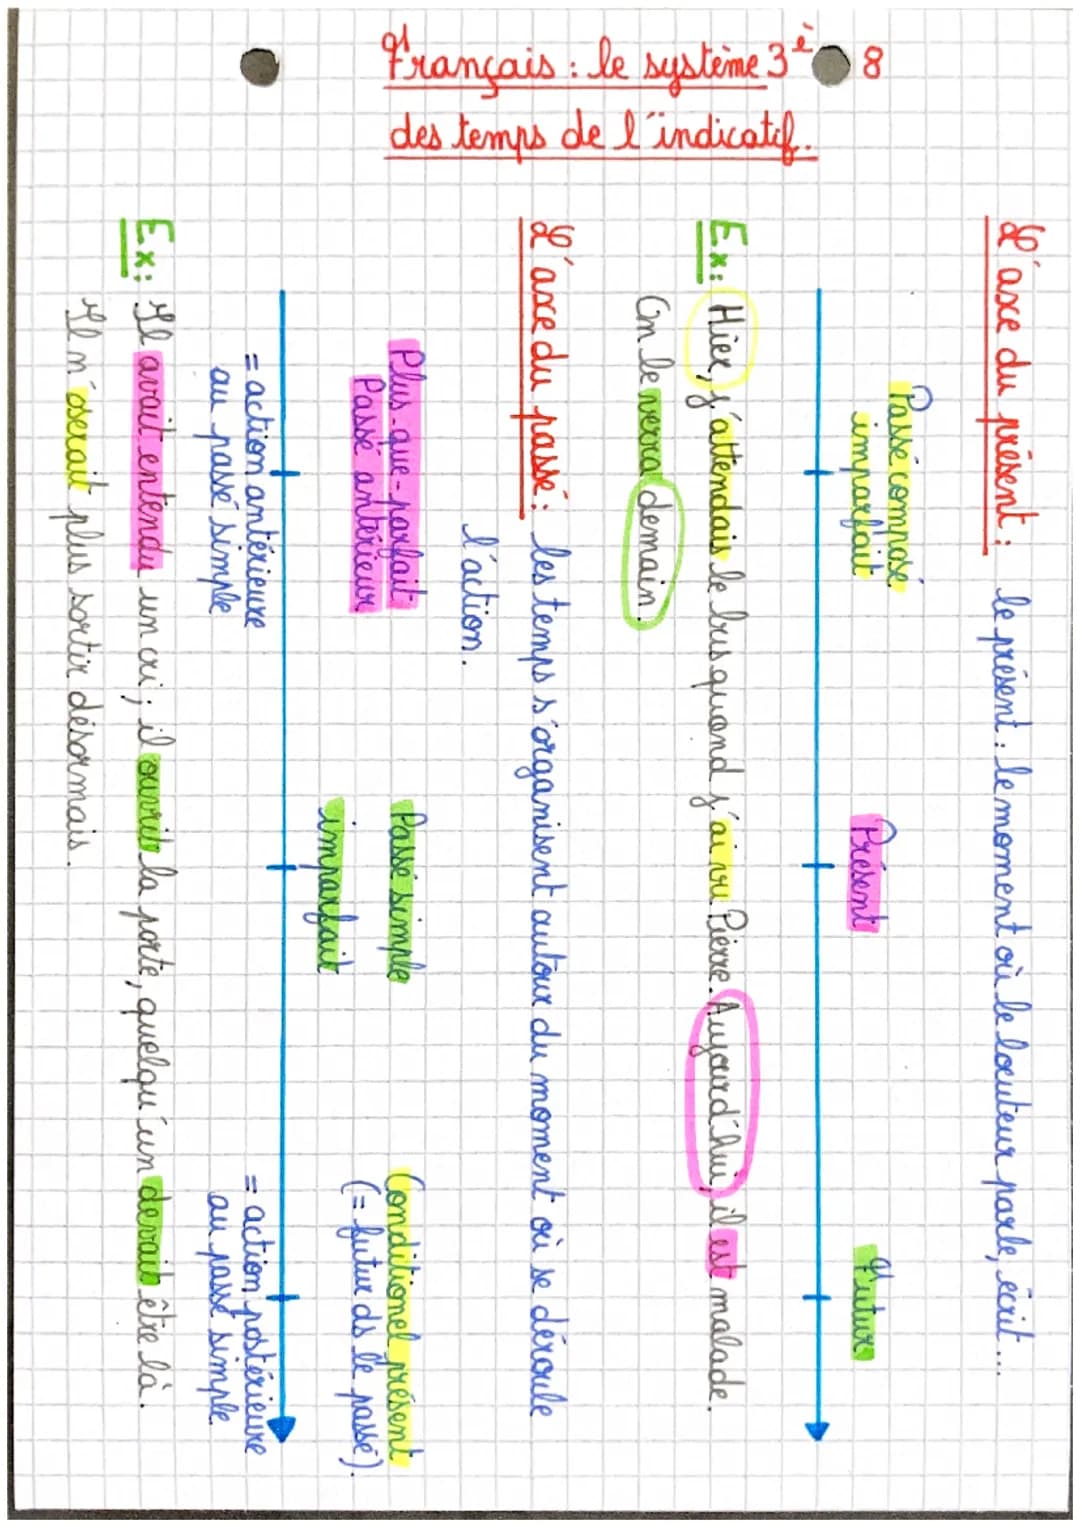 Français : le système 3è 8
des temps de l'indicatif.
L'axe du présent : le présent : le moment où le locuteur parle, écrit...
Passé composé
imparfait
Présent
Futur
Ex: Hier, j'attendais le bus quand j'ai vu Pierre. Aujourd'hui, il est malade.
On le verra demain.
L'axe du passé : les temps s'organisent autour du moment où se déroule
l'action.
Plus-que-parfait
Passé antérieur
Passé simple
imparfait
Conditionel présent
(= futur ds le passé).
= action antérieure
au passé simple
= action postérieure
au passé simple
Ex: Il avait entendu un cri ; il ouvrit la porte, quelqu'un devait être là.
Il n'oserait plus sortir désormais.